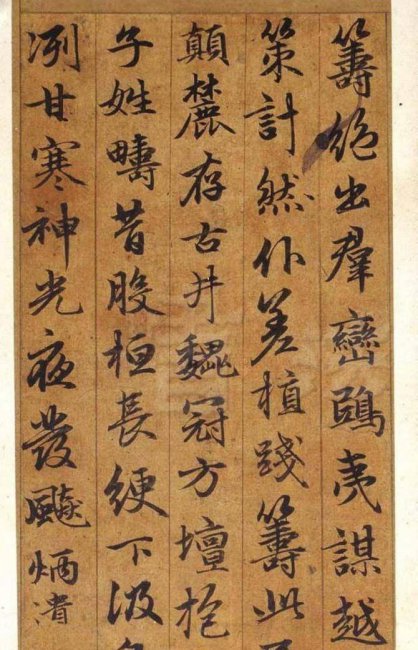 籌絕出羣巒鴟夷謀越
策計然仆差植踐籌此
顛麓存古井魏冠方壇抱
子姓疇昔股桓長綆下汲
冽甘寒神光夜發飈炳